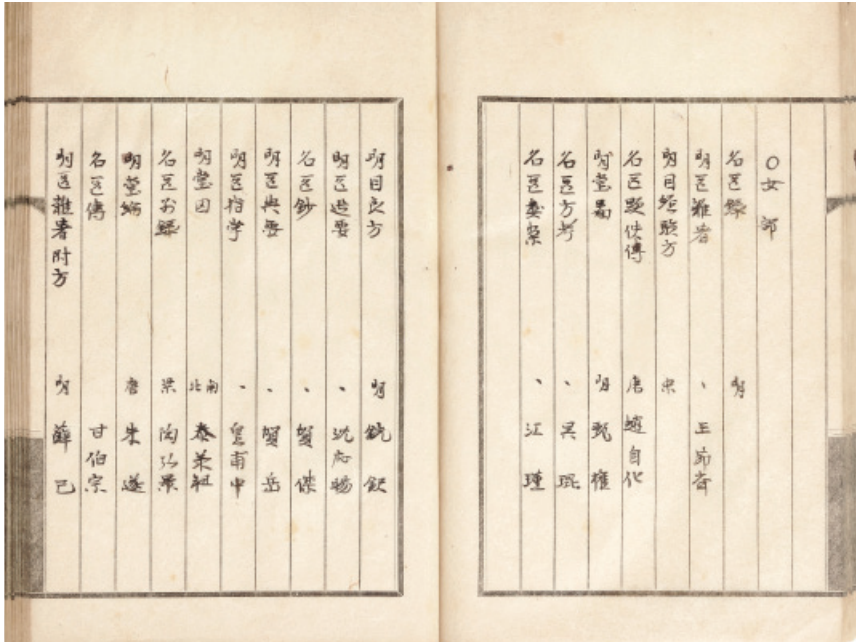 〇女部
名医録 明
明医雑者 、 王節斎
明目経験方 宋
名医顕伝 唐 趙自化
明堂 明 甄権
名医方考 、 呉琨
名医彙案 、 江瓘
明目良方 明
明医選要 、 沈応暘
名医鈔 、 賀傑
明医典要 、 賀岳
明医指学 、 皇甫中
明堂図 北南 秦承祖
名医別録 梁 陶弘景
明堂 唐 朱遂
名医傳 甘伯宗
明医雜著附方 明 薛己